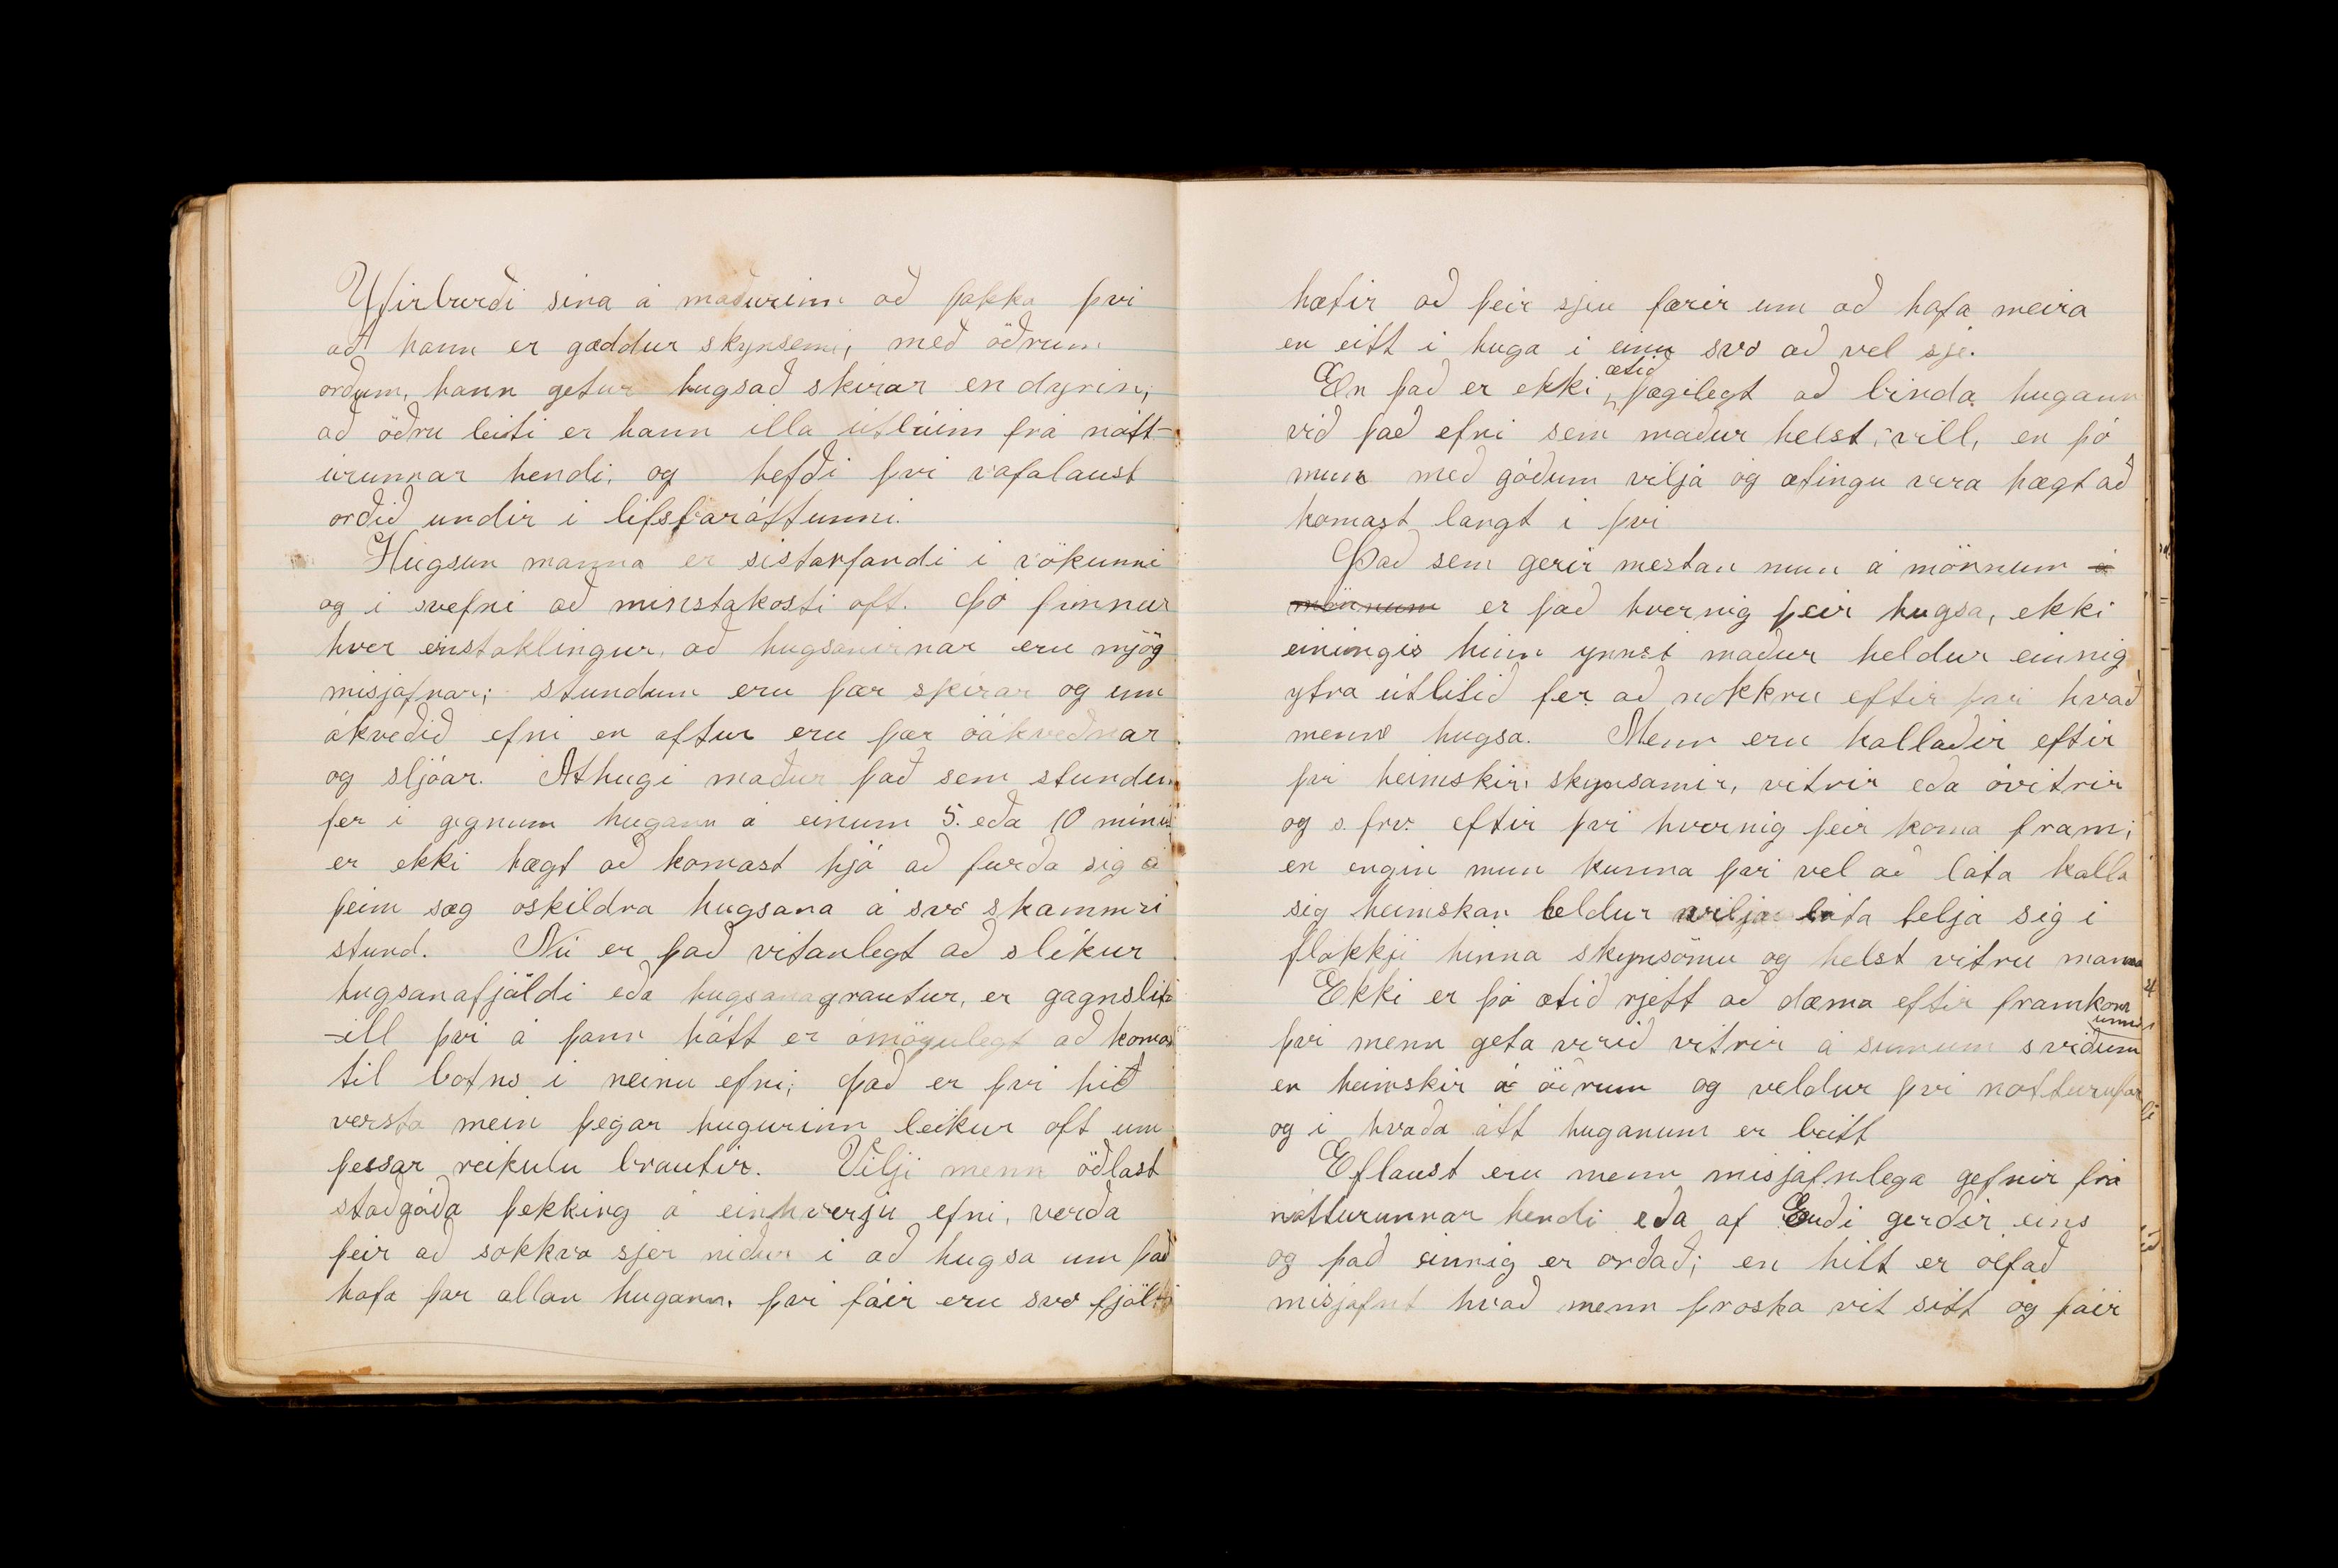 Yfirburði sina á maðurinn að þakka þvi
að hann er gæddur skynsemi, með öðrum
orðum, hann getur hugsað skirar en dyrin;
að öðru leiti er hann illa útbúinn frá nátt-
úrunnar hendi, og hefði þvi vafalaust
orðið undir i lifsbaráttunni.
Hugsun manna er sistarfandi i vökunni
og i svefni að minstakosti oft. Þó finnur
hver einstaklingur, að hugsanirnar eru mjög
misjafnar; stundum eru þær skirar og um
ákveðið efni en aftur eru þær óákveðnar
og sljóar. Athugi maður það sem stundum
fer i gegnum hugann á einum 5. eða 10 mínút
er ekki hægt að komast hjá að furða sig á
þeim sæg óskildra hugsana á svo skammri
stund. Nú er það vitanlegt að slíkur
hugsanafjöldi eða hugsanagrautur, er gagnslit-
-ill þvi á þann hátt er ómögulegt að komast
til botns i neinu efni; það er þvi hið
versta mein þegar hugurinn leikur oft um
þessar reikulu brautir. Vilji menn öðlast
staðgóða þekking á einhverju efni, verða
þeir að sökkva sjer niður i að hugsa um það
hafa þar allan hugann. þvi fáir eru svo fjöl-
hæfir að þeir sjeu færir um að hafa meira
en eitt i huga i einu svo að vel sje.
En það er ekki ætið þægilegt að binda hugann
við það efni sem maður helst vill, en þó
mun með góðum vilja og æfingu vera hægt að
komast langt i þvi
Það sem gerir mestan mun á mönnum á
mönnum er það hvernig þeir hugsa, ekki
einungis hinn ynnri maður heldur einnig
ytra útlitið fer að nokkru eftir þvi hvað
menn hugsa. Menn eru kallaðir eftir
þvi heimskir, skynsamir, vitrir eða óvitrir
og s. frv. eftir þvi hvernig þeir koma fram;
en engin mun kunna þvi vel að láta kalla
sig heimskan heldur vilja láta telja sig i
flokkji hinna skynsömu og helst vitru manna
Ekki er þó ætið rjett að dæma eftir framkom
unni
þvi menn geta verið vitrir á sumum sviðum
en heimskir á öðrum og veldur þvi nátturufar
og i hvaða átt huganum er beitt
Eflaust eru menn misjafnlega gefnir frá
nátturunnar hendi eða af Guði gerðir eins
og það einnig er orðað; en hitt er ólfað
misjafnt hvað menn þroska vit sitt og fáir